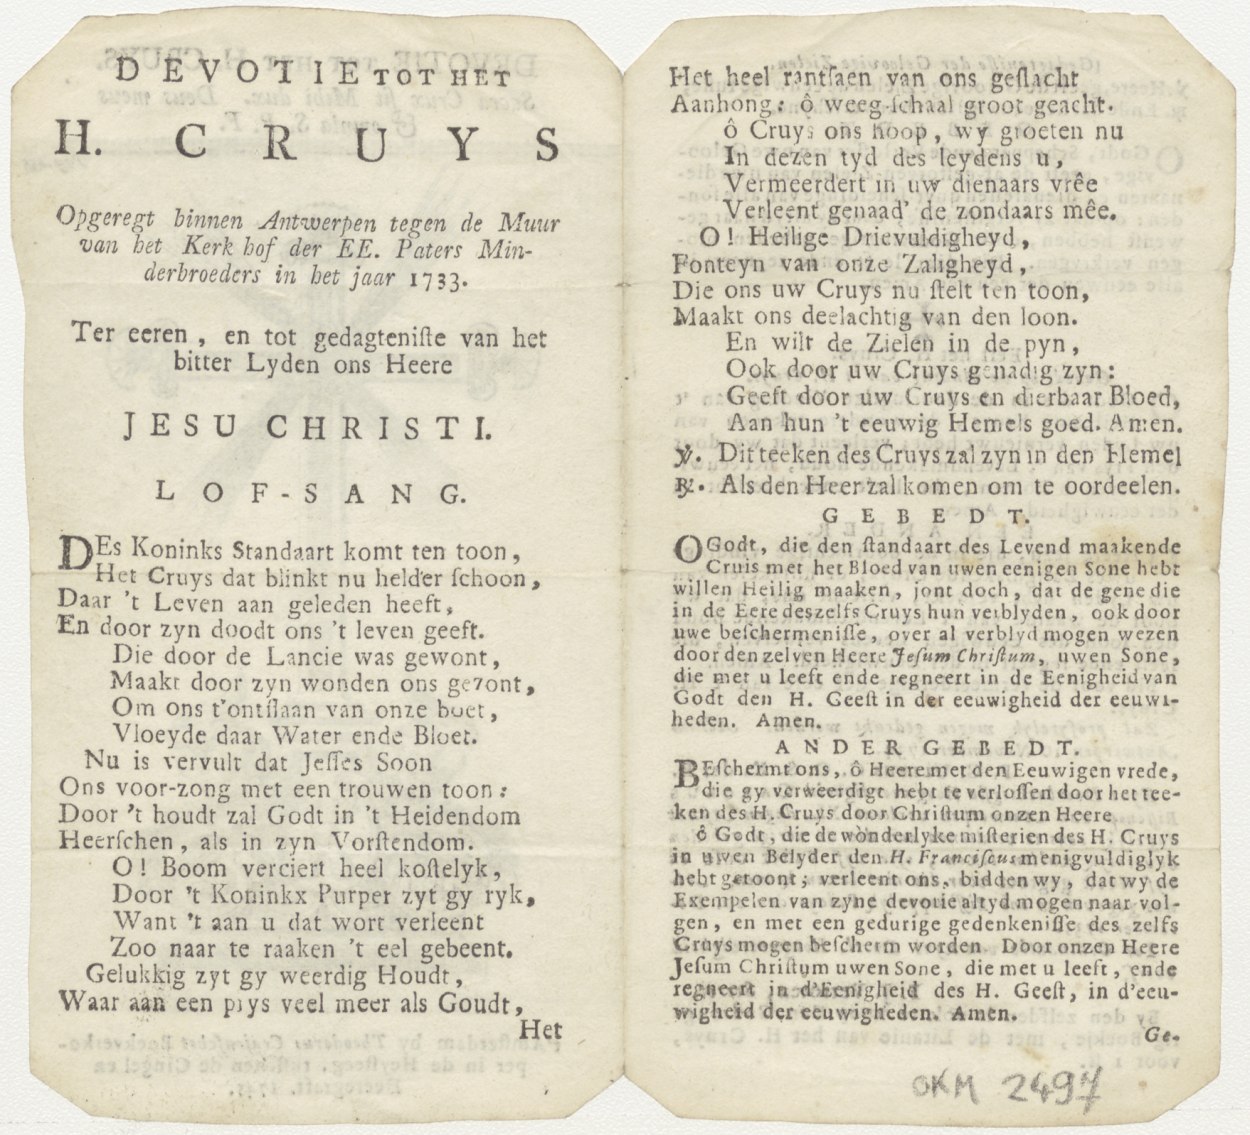 DEVOTIE TOT HET
H. CRUYS
Opgeregt binnen Antwerpen tegen de Muur
van het Kerk hof der EE. Paters Min-
derbroeders in het jaar 1733.
Ter eeren, en tot gedagteniſte van het
bitter Lyden ons Heere
JESU CHRISTI.
LOF-SANG.
DEs Koninks Standaart komt ten toon,
Het Cruys dat blinkt nu helder ſchoon,
Daar 't Leven aan geleden heeft,
En door zyn doodt ons 't leven geeft.
Die door de Lancie was gewont,
Maakt door zyn wonden ons gezont,
Om ons t'ontſlaan van onze boet,
Vloeyde daar Water ende Bloet.
Nu is vervult dat Jeſſes Soon
Ons voor-zong met een trouwen toon:
Door 't houdt zal Godt in 't Heidendom
Heerſchen, als in zyn Vorſtendom.
O! Boom verciert heel koſtelyk,
Door 't Koninkx Purper zyt gy ryk,
Want 't aan u dat wort verleent
Zoo naar te raaken 't eel gebeent.
Gelukkig zyt gy weerdig Houdt,
Waar aan een prys veel meer als Goudt,
Het
Het heel rantſaen van ons geſlacht
Aanhong: ô weeg-ſchaal groot geacht.
ô Cruys ons hoop, wy groeten nu
In dezen tyd des leydens u,
Vermeerdert in uw dienaars vrêe
Verleent genaad' de zondaars mêe.
O! Heilige Drievuldigheyd,
Fonteyn van onze Zaligheyd,
Die ons uw Cruys nu ſtelt ten toon,
Maakt ons deelachtig van den loon.
En wilt de Zielen in de pyn,
Ook door uw Cruys genadig zyn:
Geeft door uw Cruys en dierbaar Bloed,
Aan hun 't eeuwig Hemels goed. Amen.
℣. Dit teeken des Cruys zal zyn in den Hemel
℟. Als den Heer zal komen om te oordeelen.
GEBEDT.
O Godt, die den ſtandaart des Levend maakende
Cruis met het Bloed van uwen eenigen Sone hebt
willen Heilig maaken, jont doch, dat de gene die
in de Eere deszelfs Cruys hun verblyden, ook door
uwe beſchermeniſſe, over al verblyd mogen wezen
door den zelven Heere Jeſum Chriſtum, uwen Sone,
die met u leeft ende regneert in de Eenigheid van
Godt den H. Geeſt in der eeuwigheid der eeuwi-
heden. Amen.
ANDER GEBEDT.
BEſchermt ons, ô Heere met den Eeuwigen vrede,
die gy verweerdigt hebt te verloſſen door het tee-
ken des H. Cruys door Chriſtum onzen Heere
ô Godt, die de wonderlyke miſterien des H. Cruys
in uwen Belyder den H. Franciſcus menigvuldiglyk
hebt getoont; verleent ons, bidden wy, dat wy de
Exempelen van zyne devotie altyd mogen naar vol-
gen, en met een gedurige gedenkeniſſe des zelfs
Cruys mogen beſcherm worden. Door onzen Heere
Jeſum Chriſtum uwen Sone, die met u leeft, ende
regneert in d'Eenigheid des H. Geeſt, in d'eeu-
wigheid der eeuwigheden. Amen.
Ge.
OKM 2497